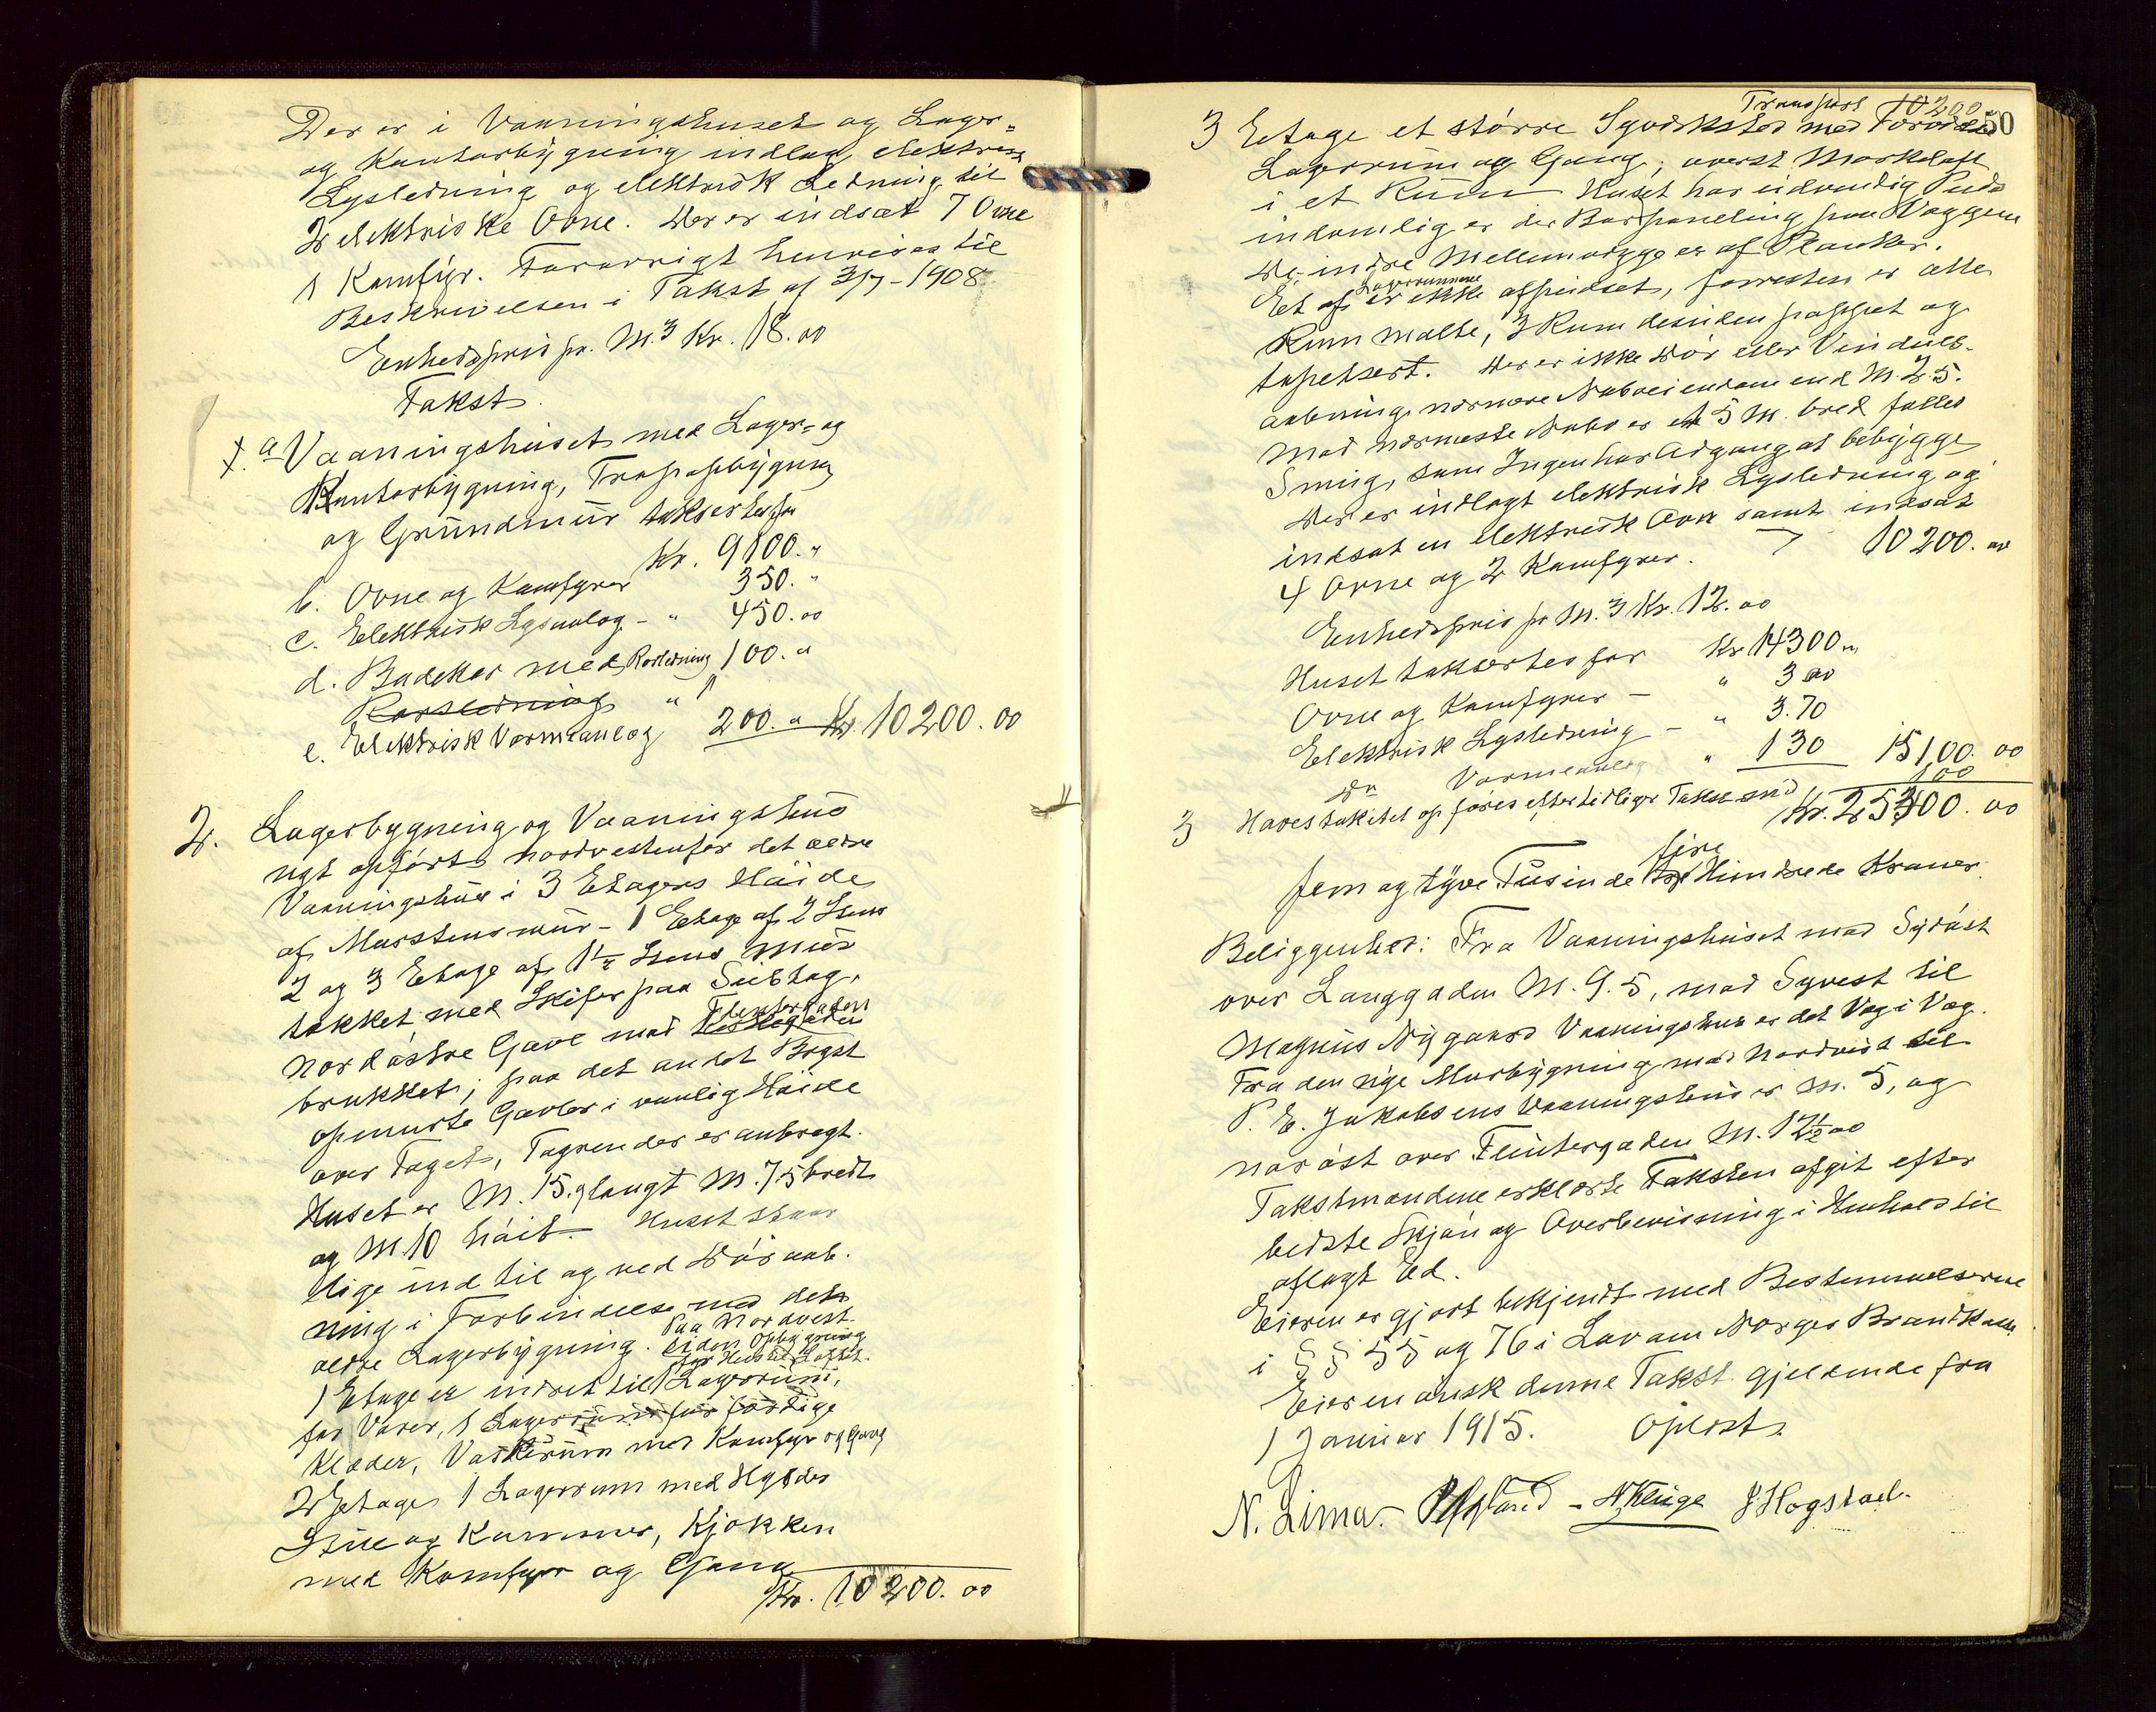 Der er i Vaaningshuset og Lager-
og Kontorbygning indlag elektrisk
Lysledning og elektrisk Ledning til
2 elektriske Ovne. Der er indsat 7 Ovne
1 Komfyr. Forøvrigt henvises til
Beskrivelsen i Takst af 3/7-1908
Enhedspris pr. M.3 Kr. 18.00
Takst
1. a Vaaningshuset med Lager- og
Kontorbygning, Trapopbygning
og Grundmur taksertes for
Kr. 9100."
b. Ovne og Komfyrer 350."
c. Elektrisk Lysanlæg - " 450.00
d. Badekar med Rørledning 100."
Rørledning "
e. Elektrisk Varmeanlæg 200." Kr. 10200.00
2. Lagerbygning og Vaaningshus
nyt opført nordvestenfor det ældre
Vaaningshus i 3 Etagers Höide
af Murstensmur - 1 Etage af 2 Stens
2 og 3 Etage af 1½ Stens Mur
tækket med Skifer paa Subtag,
Flintergaden
nordöstre Gavl mod
brukket; paa det andet Brygst
opmurte Gavler i vanlig Höide
over Taget, Tagrender er anbragt.
Huset er M. 15.9 langt M. 7.5 bredt
og M. 10 höit. Huset staar
lige ind til og ved Döraab-
ning i Forbindelse med det
ældre Lagerbygning. Paa Nordvest-
siden Opbygning
for Heis til Loftet.
1 Etage er indret til 1 Lagerrum,
for Varer, 1 Lagerrum for færdige
Klæder, Vaskerum med Komfyr og Gang
2 Etage 1 Lagerrum med Hylder
Stue og Kammer, Kjøkken
med Komfyr og Gang
Kr. 10200.00
50
Transport 10200
3 Etage et större Syværksted med
Lagerrum og Gang, överst Mørkeloft
i et Rum Huset har udvendig Puds
indvendig er der Bordpaneling paa Væggene
De indre Mellemvægge er af Planker.
Lagerrummene
Et af er ikke afpudset, forresten er alle
Rum malte, 3 Rum desuden pappet og
tapetsert. Der er ikke Dör eller Vindues-
aabning nærmere Naboeiendom end M. 2.5.
Mod nærmeste Nabo er et 5 M. bred fælles
Smug, som Ingen har Adgang at bebygge
Der er indlagt elektrisk Lysledning og
indsat en elektrisk Ovn samt indsat
4 Ovne og 2 Komfyrer. 10200.00
Enhedspris pr M.3 Kr. 12.00
Huset taksertes for Kr 14300."
Ovne og Komfyrer - " 300
Elektrisk Lysledning - " 3.70
Do Varmeanlæg " 130 15100.00
3 Havestakitet opføres efter tidligere Takst med 200
Kr. 25400.00
fire
fem og tyve Tusinde Hundrede Kroner.
Beliggenhed: Fra Vaaningshuset mod Sydöst
over Langgaden M. 9.5, mod Syvest til
Magnus Nygaard Vaaningshus er det Væg i Væg.
Fra den nye Murbygning mod Nordvest til
P. E. Jakobsens Vaaningshus er M. 5, og
nordöst over Flintergaden M. 12½ 00
Takstmændene erklærte Taksten afgit efter
bedste Skjön og Overbevisning i Henhold til
aflagt Ed.
Eieren er gjort bekjendt med Bestemmelserne
i §§ 55 og 76 i Lov om Norges Brandkasse
Eieren önsk denne Takst gjeldende fra
1 Januar 1915. Oplest.
N. Lima. - N Kluge J Hogstad.